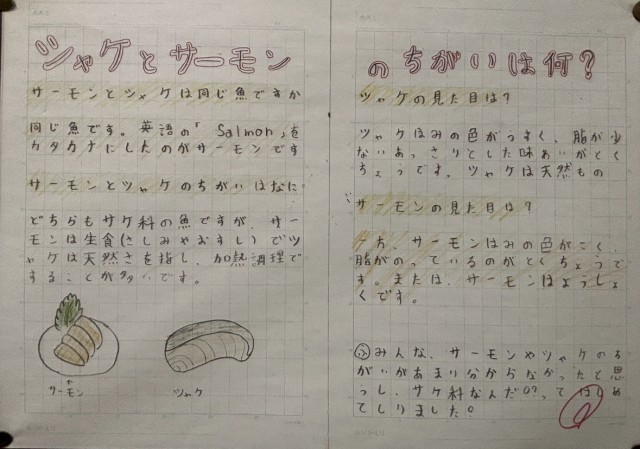 シャケとサーモン
サーモンとシャケは同じ魚ですか
同じ魚です。英語の「Salmon」を
カタカナにしたのがサーモンです
サーモンとシャケのちがいはなに
どちらもサケ科の魚ですが、サー
モンは生食(さしみやおすし)でシ
ャケは天然さを指し、加熱調理で
することが多いです。
サーモン
シャケ
のちがいは何?
シャケの見た目は?
シャケはみの色がうすく、脂が少
ないあっさりとした味あいがとく
ちょうです。シャケは天然もの
サーモンの見た目は?
サーモンはみの色がこく、
脂がのっているのがとくちょうで
す。または、サーモンはようしょ
くです。
みんな、サーモンやシャケのち
がいがあまり分からなかったと思
うし、サケ科なんだ!?ってはじめ
てしりました。